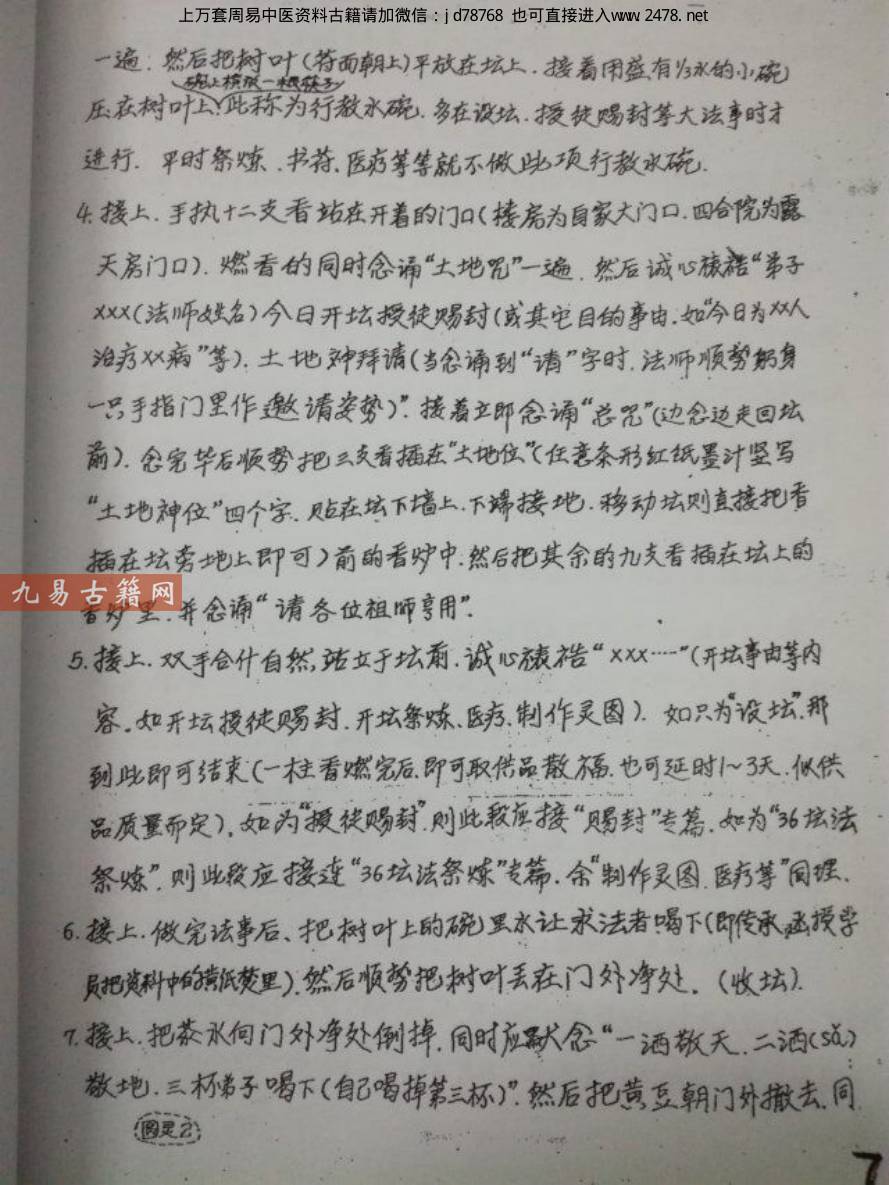 上万套周易中医资料古籍请加微信：jd78768 也可直接进入www.2478.net
一遍．然后把树叶（符面朝上）平放在坛上．接着用盛有1/3水的小碗
碗上横放一根筷子
压在树叶上．此称为行教水碗．多在设坛．授徒赐封等大法事时才
进行．平时祭炼．书符．医疗等等就不做此项行教水碗．
4.接上．手执十二支香站在开着的门口（楼房为自家大门口．四合院为露
天房门口）．燃香的同时念诵“土地咒”一遍．然后诚心禱告“弟子
xxx（法师姓名）今日开坛授徒赐封（或其它目的事由．如“今日为xx人
治疗xx病”等）．土地神拜请（当念诵到“请”字时．法师顺势躬身
一只手指门里作邀请姿势）”．接着立即念诵“总咒”（边念边走回坛
前）．念完毕后顺势把三支香插在“土地位”（任意条形红纸墨汁竖写
“土地神位”四个字．贴在坛下墙上．下端接地．移动坛则直接把香
插在坛旁地上即可）前的香炉中．然后把其余的九支香插在坛上的
九易古籍网
香炉里．并念诵“请各位祖师享用”．
5.接上．双手合什自然，站立于坛前．诚心禱告“xxx……”（开坛事由等内
容。如开坛授徒赐封．开坛祭炼、医疗．制作灵图）．如只为“设坛”．那
到此即可结束（一柱香燃完后．即可取供品散福．也可延时1~3天．似供
品质量而定）．如为“授徒赐封”．则此段应接“赐封”专篇．如为“36坛法
祭炼”．则此段应接连“36坛法祭炼”专篇．余“制作灵图．医疗等”同理．
6.接上．做完法事后、把树叶上的碗里水让求法者喝下（即传承．函授学
员把资料中的黄纸焚里）．然后顺势把树叶丢在门外净处．（收坛）．
7.接上．把茶水向门外净处倒掉．同时应默念“一洒敬天．二洒（sǎ）
敬地．三杯弟子喝下（自己喝掉第三杯）”．然后把黄豆朝门外撒去．同
7